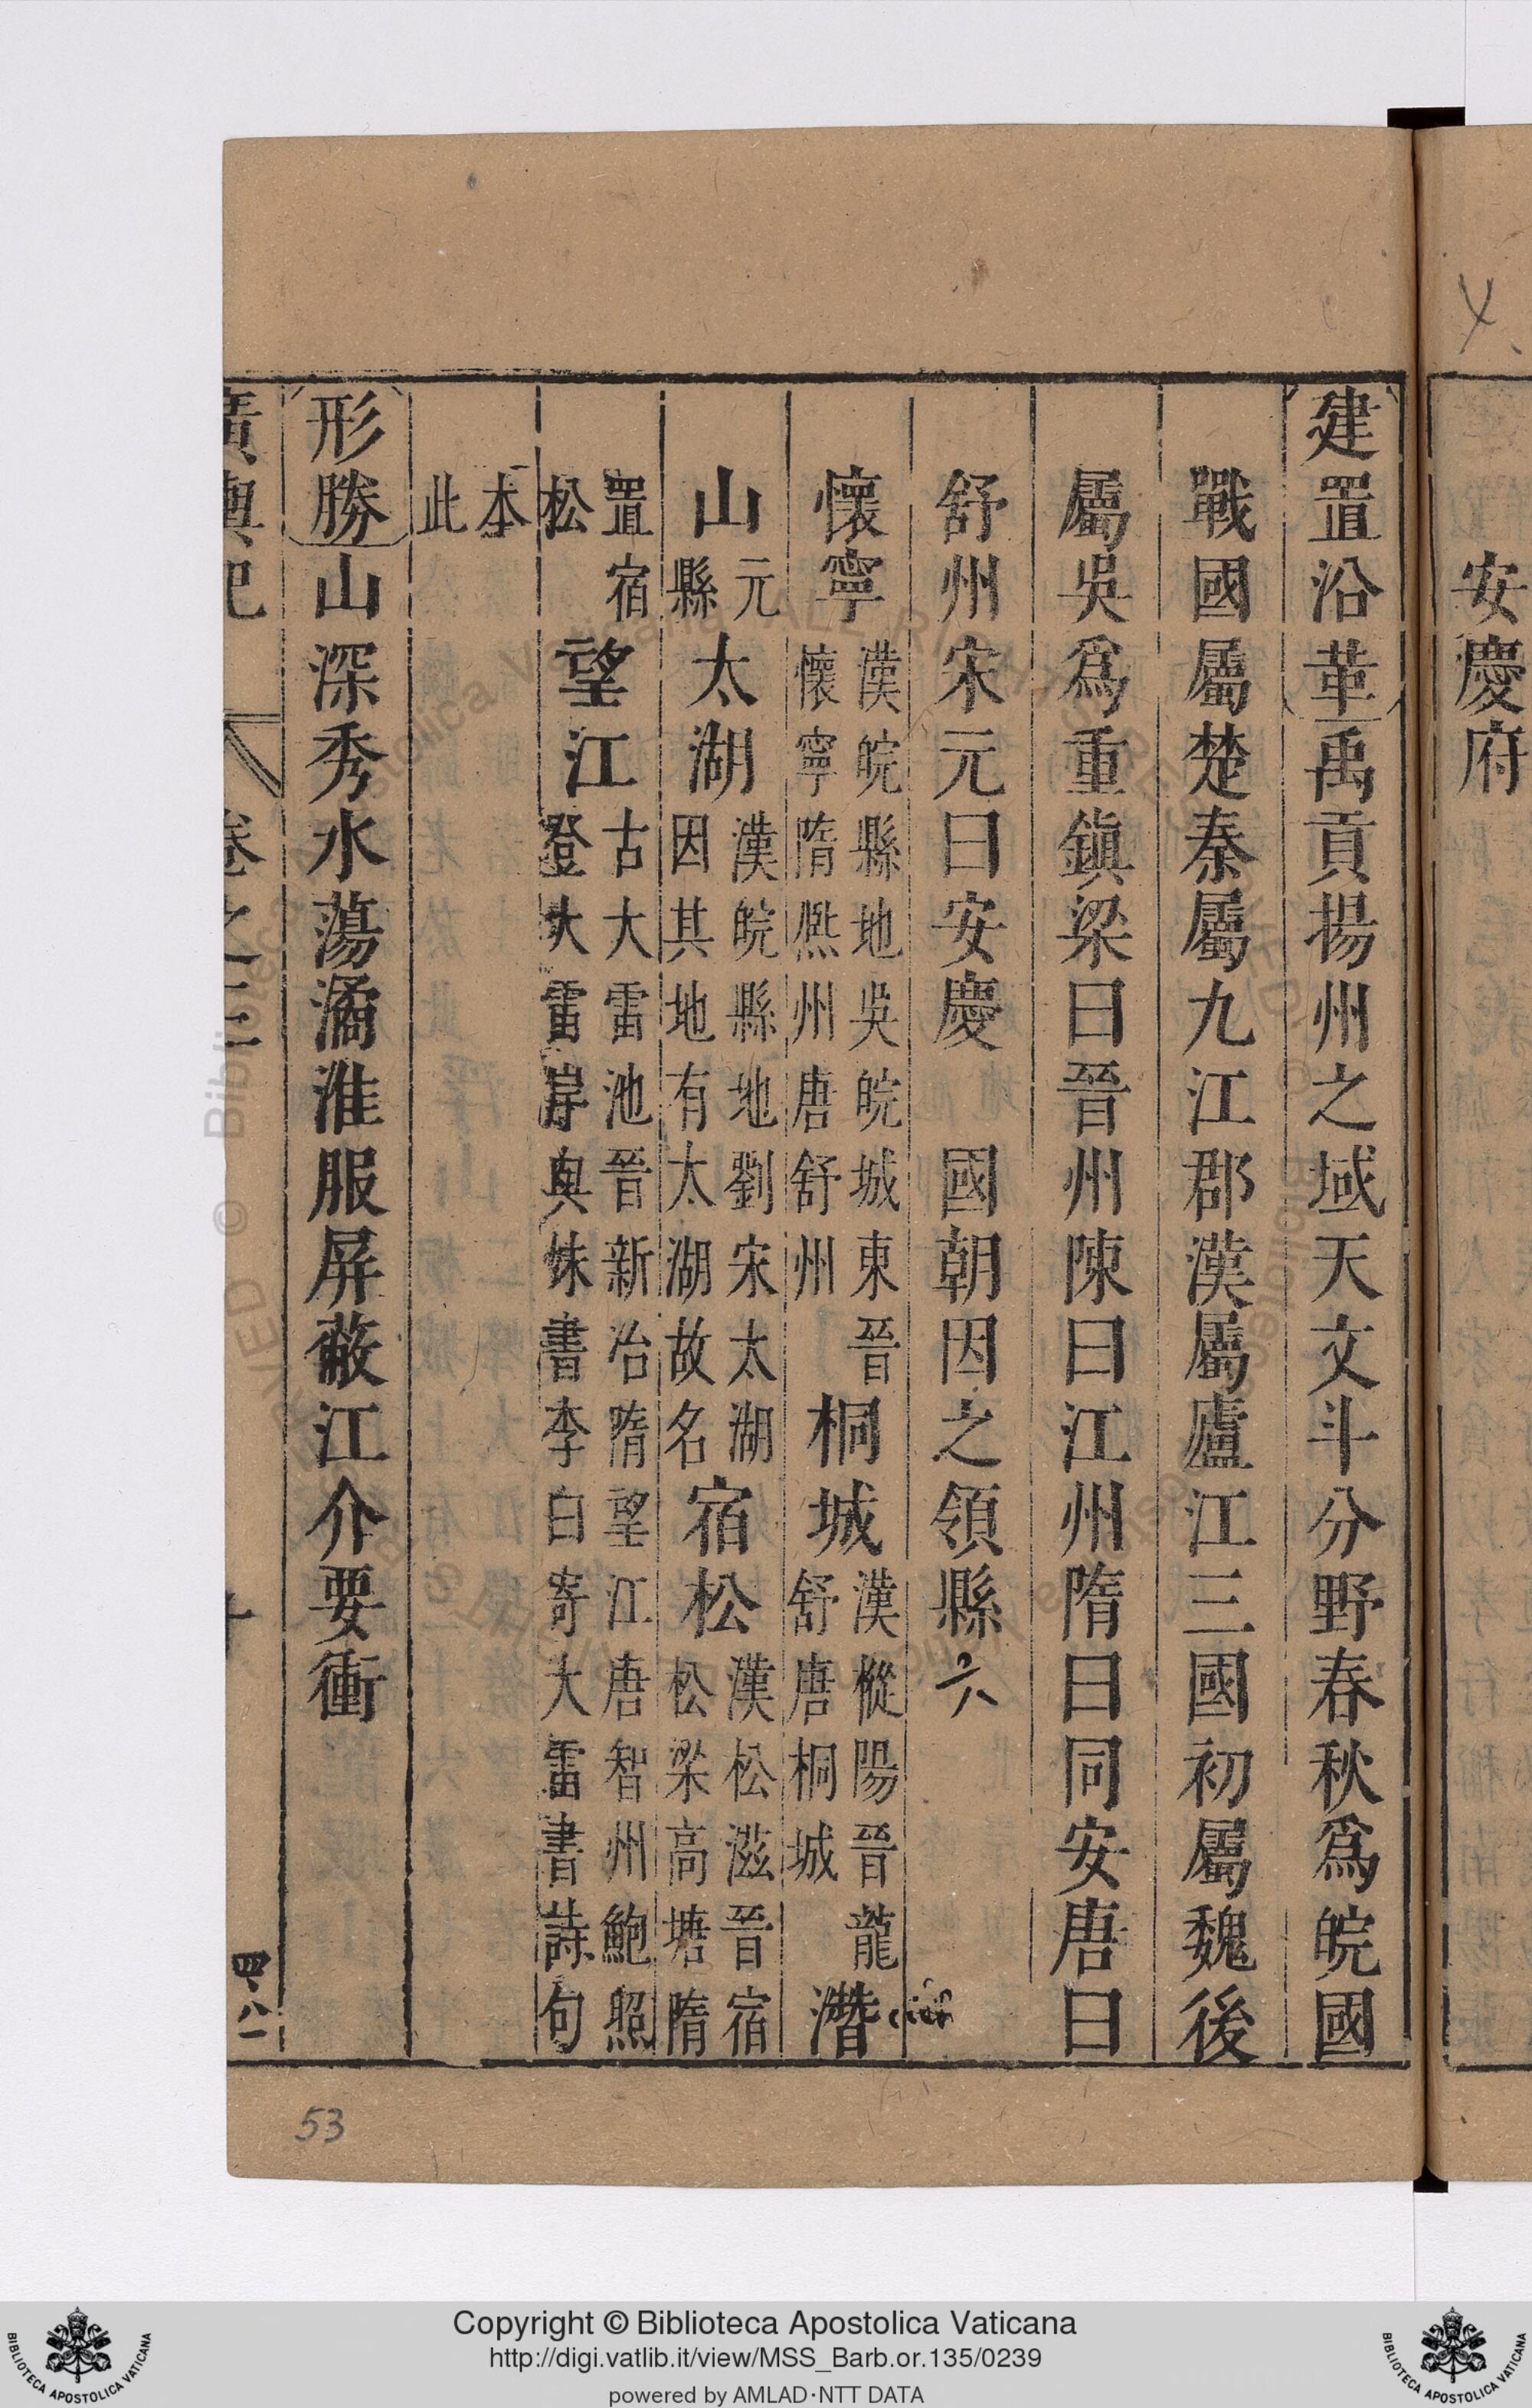 安慶府
建置沿革禹貢揚州之域天文斗分野春秋爲皖國
戰國屬楚秦屬九江郡漢屬廬江三國初屬魏後
屬吳爲重鎮梁曰晉州陳曰江州隋曰同安唐曰
舒州宋元曰安慶 國朝因之領縣六
懷寧漢皖縣地吳皖城東晉懷寧隋熈州唐舒州桐城漢樅陽晉龍舒唐桐城潛
山元縣太湖漢皖縣地劉宋太湖因其地有太湖故名宿松漢松滋晉宿松梁高塘隋
置宿松望江古大雷池晉新冶隋望江唐智州鮑照登大雷岸與妹書李白寄大雷書詩句
本此
形勝山深秀水蕩潏淮服屏蔽江介要衝
廣輿記 卷之三 四八
53
Copyright © Biblioteca Apostolica Vaticana
http://digi.vatlib.it/view/MSS_Barb.or.135/0239
powered by AMLAD·NTT DATA
BIBLIOTECA APOSTOLICA VATICANA
BIBLIOTECA APOSTOLICA VATICANA